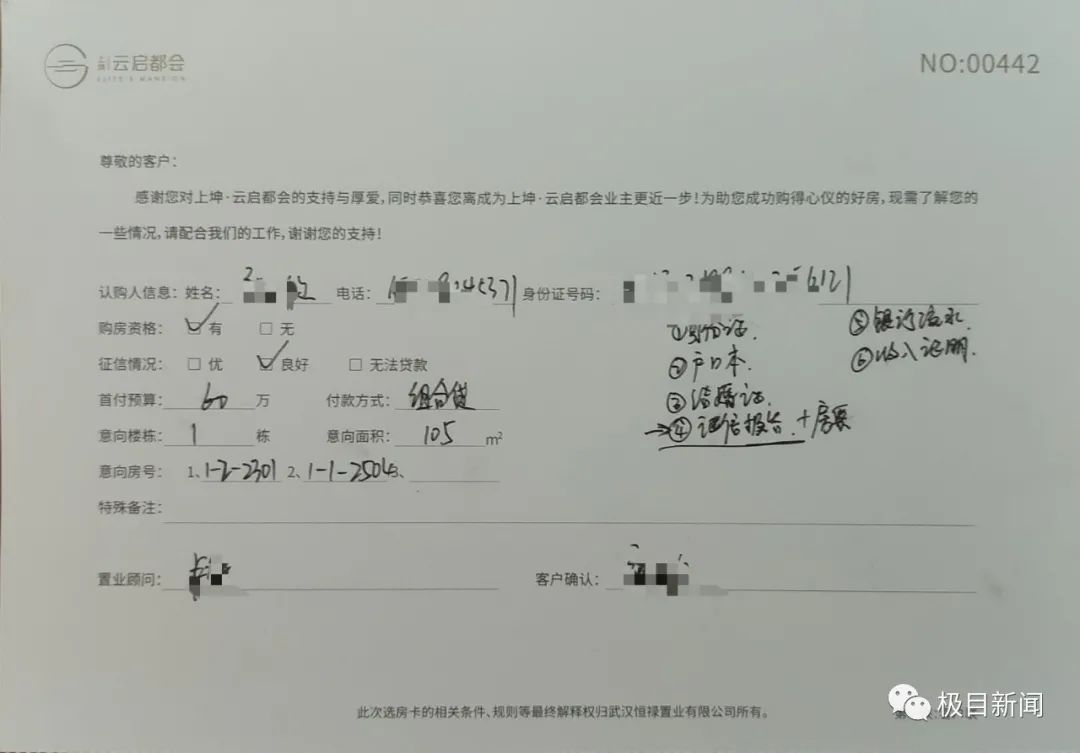 云启都会
ELITE'S MANSION
NO:00442
尊敬的客户：
感谢您对上坤·云启都会的支持与厚爱，同时恭喜您离成为上坤·云启都会业主更近一步！为助您成功购得心仪的好房，现需了解您的
一些情况，请配合我们的工作，谢谢您的支持！
认购人信息：姓名： 电话： 身份证号码：
购房资格： ☑有 □无
①身份证. ⑤银行流水.
征信情况： □优 ☑良好 □无法贷款
②户口本. ⑥收入证明.
首付预算： 60 万 付款方式： 组合贷
③结婚证.
意向楼栋： 1 栋 意向面积： 105 m²
→④征信报告.+房票
意向房号： 1、1-2-2301 2、1-1-2504 3、
特殊备注：
置业顾问： 客户确认：
此次选房卡的相关条件、规则等最终解释权归武汉恒禄置业有限公司所有。
极目新闻